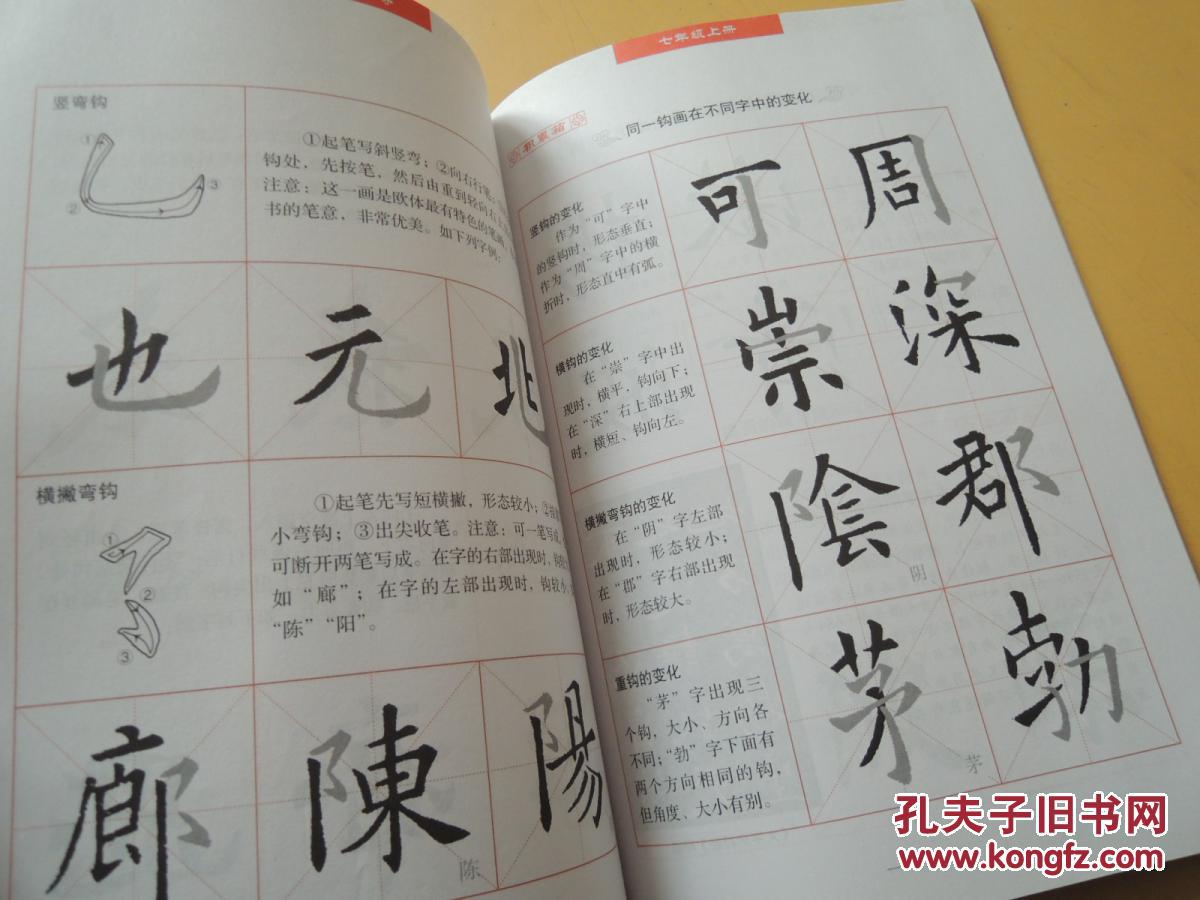 竖弯钩
①
②
③
①起笔写斜竖弯；②向右行笔
钩处，先按笔，然后由重到轻向右上
注意：这一画是欧体最有特色的笔画
书的笔意，非常优美。如下列字例：
也 元 北
横撇弯钩
①
②
③
①起笔先写短横撇，形态较小；②
小弯钩；③出尖收笔。注意：可一笔写成，
可断开两笔写成。在字的右部出现时，钩
如“廊”；在字的左部出现时，钩较小，
“陈”“阳”。
廊 陳 陽
陈
七年级上册
积累箱
同一钩画在不同字中的变化
竖钩的变化
作为“可”字中
的竖钩时，形态垂直；
作为“周”字中的横
折时，形态直中有弧。
可 周
横钩的变化
在“崇”字中出
现时，横平，钩向下；
在“深”右上部出现
时，横短、钩向左。
崇 深
横撇弯钩的变化
在“阴”字左部
出现时，形态较小；
在“郡”字右部出现
时，形态较大。
陰 郡
阴
重钩的变化
“茅”字出现三
个钩，大小、方向各
不同；“勃”字下面有
两个方向相同的钩，
但角度、大小有别。
茅 勃
茅
孔夫子旧书网
www.kongfz.com